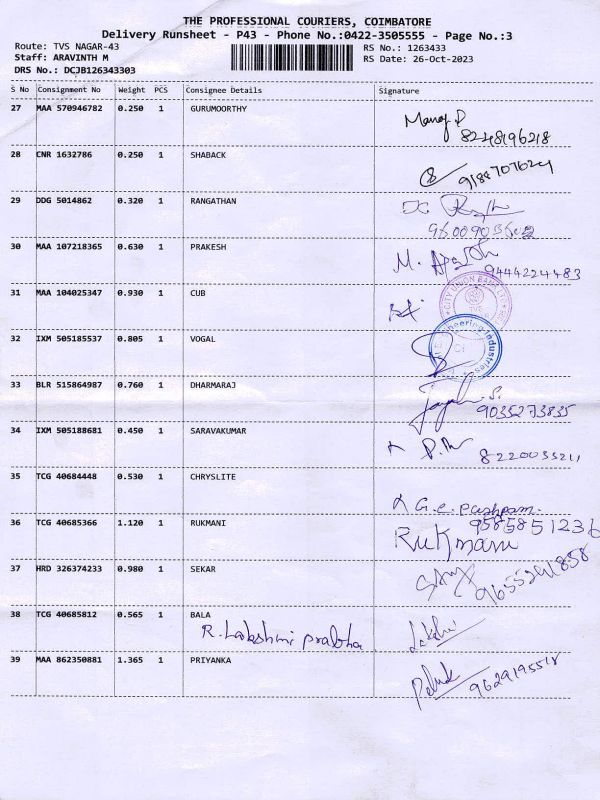 THE PROFESSIONAL COURIERS, COIMBATORE
Delivery Runsheet - P43 - Phone No.:0422-3505555 - Page No.:3
Route: TVS NAGAR-43 RS No.: 1263433
Staff: ARAVINTH M RS Date: 26-Oct-2023
DRS No.: DCJB126343303
S No Consignment No Weight PCS Consignee Details Signature
27 MAA 570946782 0.250 1 GURUMOORTHY Manoj P
8248196218
28 CNR 1632786 0.250 1 SHABACK
9188707624
29 DDG 5014862 0.320 1 RANGATHAN
30 MAA 107218365 0.630 1 PRAKESH M.
9444224483
31 MAA 104025347 0.930 1 CUB CITY UNION BANK LTD
32 IXM 505185537 0.805 1 VOGAL Engineering Industries
33 BLR 515864987 0.760 1 DHARMARAJ
9035273835
34 IXM 505188681 0.450 1 SARAVAKUMAR
8220035211
35 TCG 40684448 0.530 1 CHRYSLITE G.e. pushpam.
36 TCG 40685366 1.120 1 RUKMANI 9585851236
Rukmani
37 HRD 326374233 0.980 1 SEKAR
38 TCG 40685812 0.565 1 BALA
R. Lakshmi prabha Lakshmi
39 MAA 862350881 1.365 1 PRIYANKA
9629195518